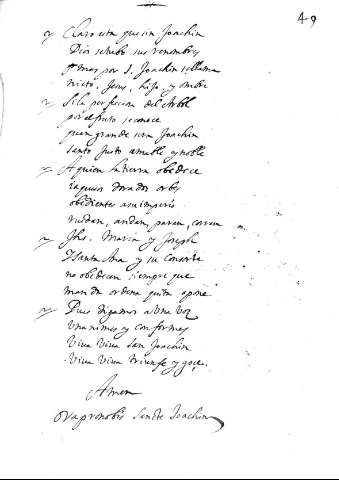 49
Claro esta que un Joachin
Dios le hubo sus renombres
mas por S. Joachin se llama
nieto, Jesus, hijo, y ombre
Si la perfeccion del Arbol
por el fruto se conoce
quan grande sera Joachin
santo justo amable y noble
A quien la tierra obedece
dorados orbes
obedientes a su imperio
ruedan, andan, paran, corren
Jhs. Maria y Joseph
Santa Ana y su Consorte
no obedecen siempre que
manda ordena quita y pone
Pues digamos a una voz
unanimes y conformes
Viva Viva San Joachin
Viva Viva triunfe y goçe.
Amen
Ora pro nobis Sancte Joachin